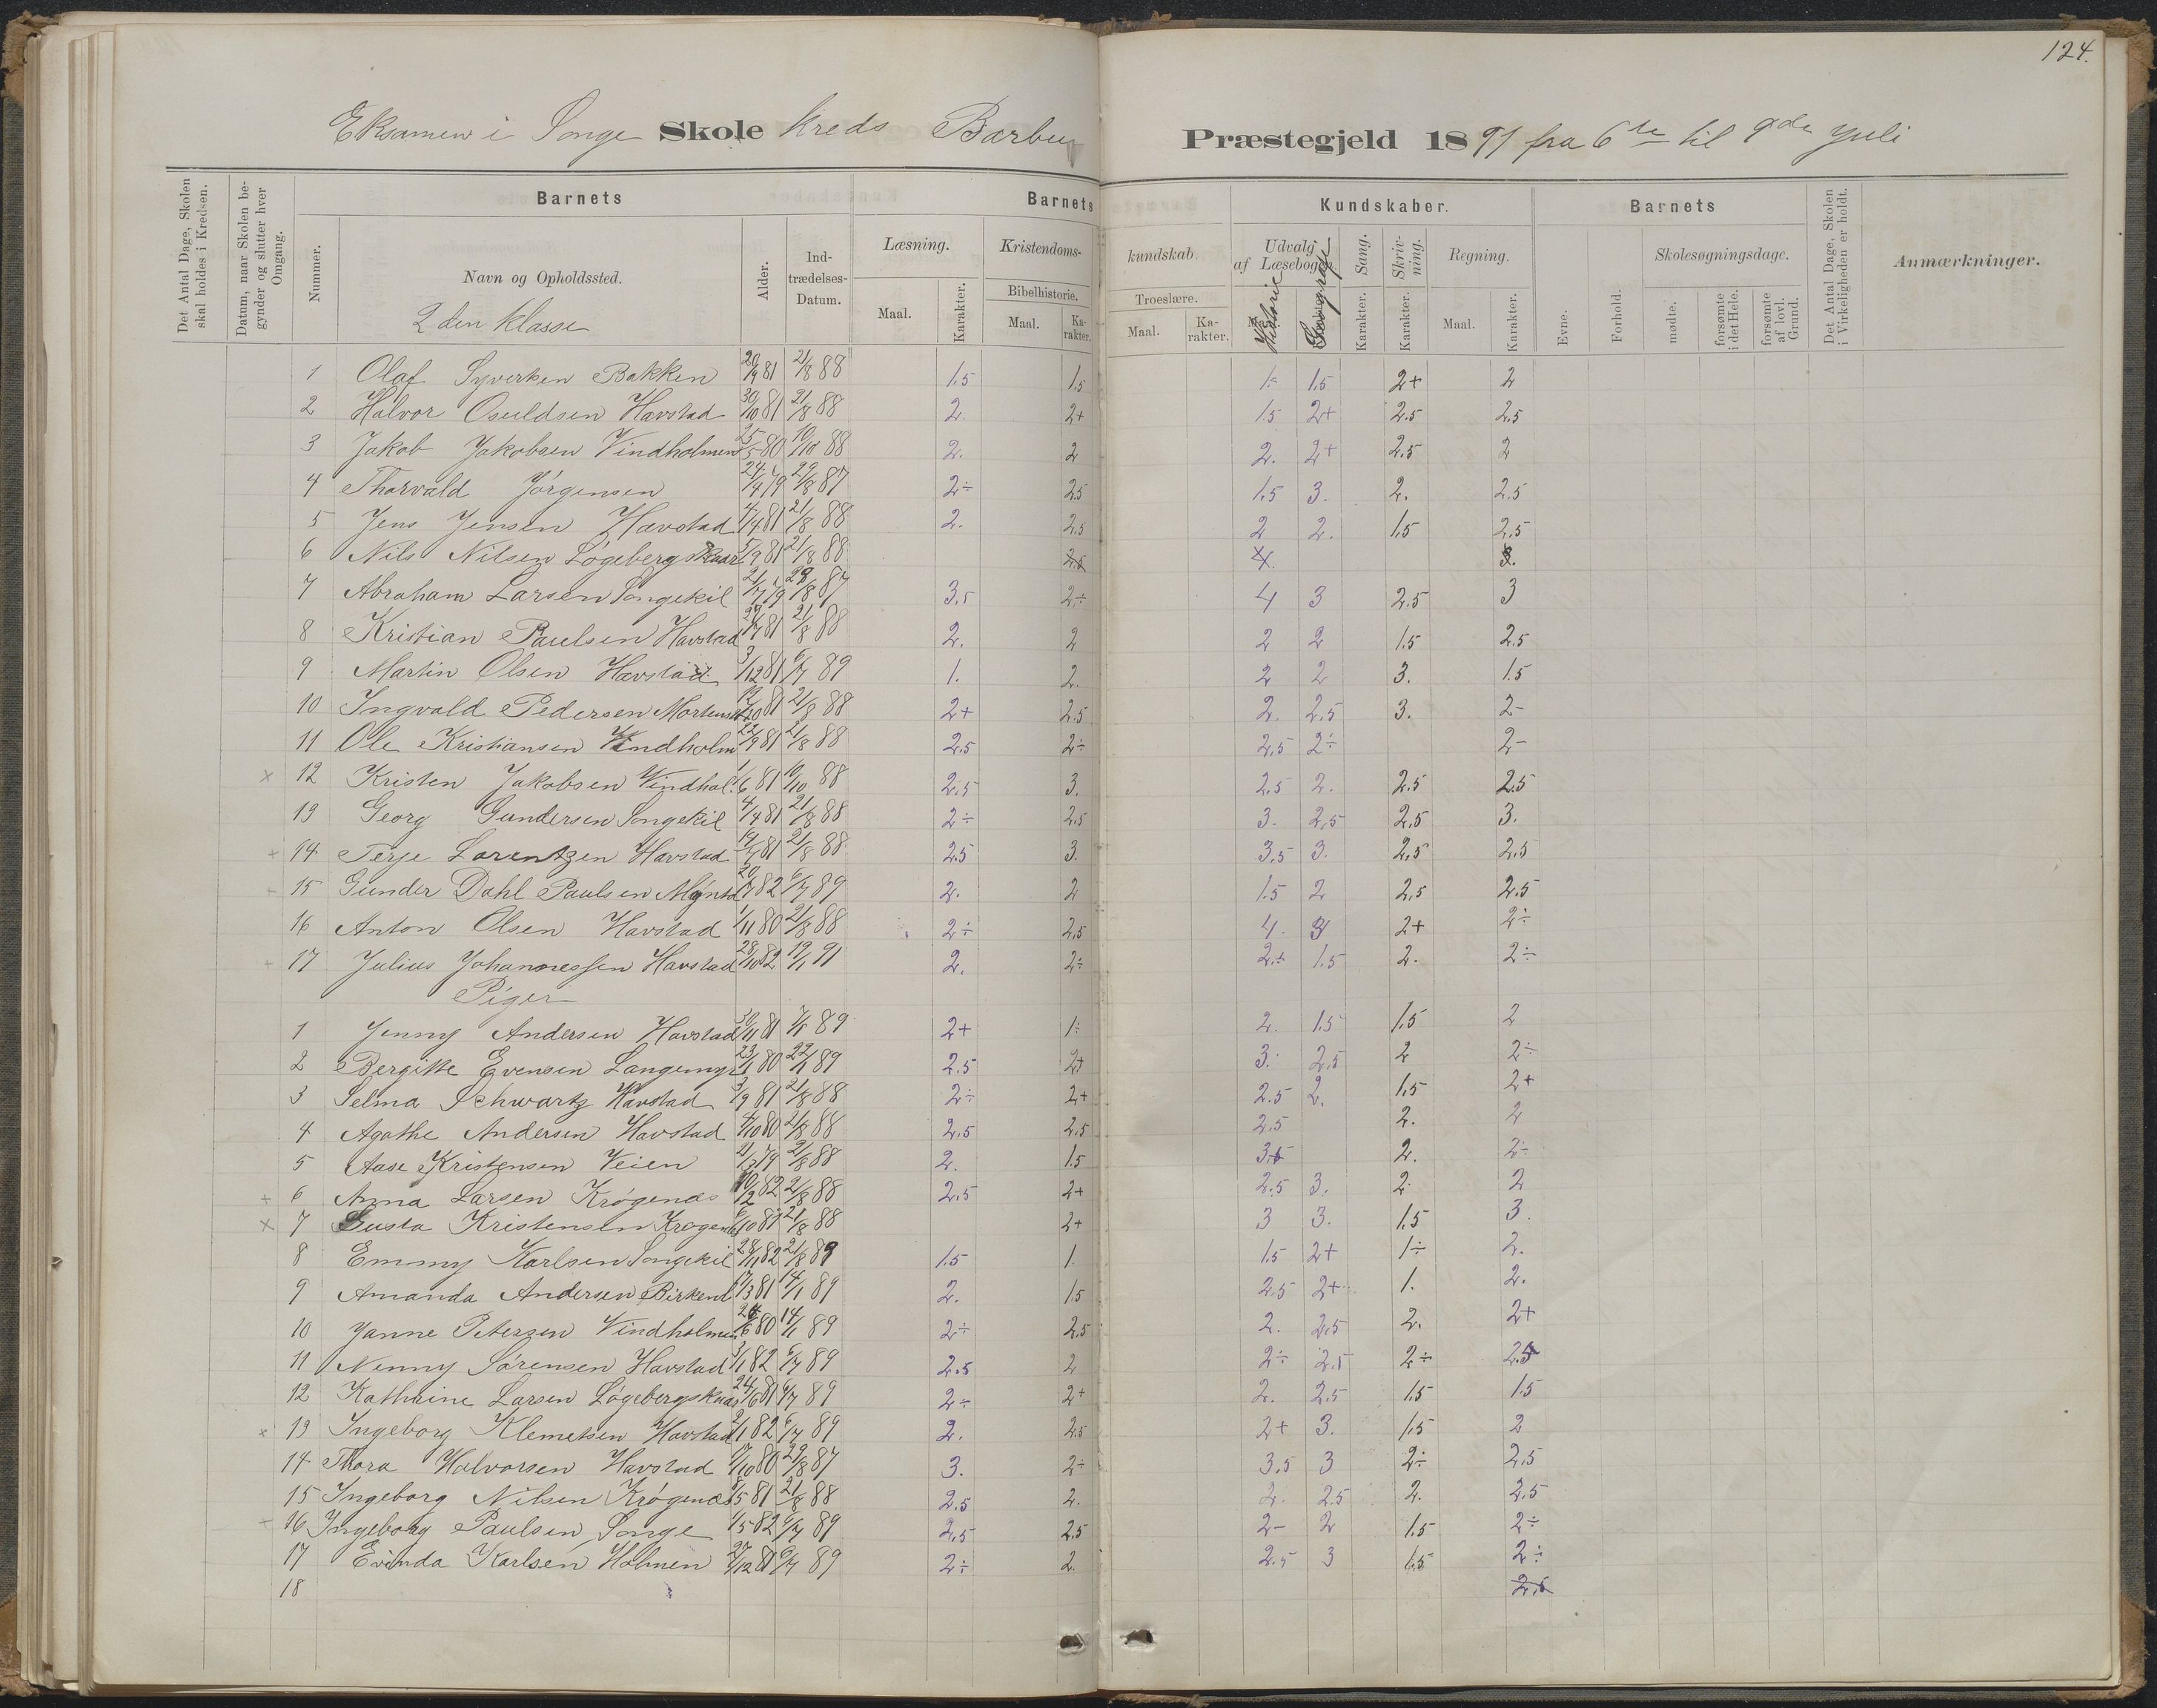 124.
Eksamen i Songe Skole Kreds Barbu Præstegjeld 1891 fra 6te til 9de Juli
Det Antal Dage, Skolen skal holdes i Kredsen.
Datum, naar Skolen begynder og slutter hver Omgang.
Barnets
Nummer.
Navn og Opholdssted.
Alder.
Indtrædelses-Datum.
Barnets Kundskaber.
Læsning. Maal. Karakter.
Kristendomskundskab.
Bibelhistorie. Maal. Karakter.
Troeslære. Maal. Karakter.
Udvalg af Læsebogen
Historie Geografi
Sang. Karakter.
Skrivning. Karakter.
Regning. Maal. Karakter.
Barnets
Evne.
Forhold.
Skolesøgningsdage.
mødte.
forsømte i det Hele.
forsømte af lovl. Grund.
Det Antal Dage, Skolen i Virkeligheden er holdt.
Anmærkninger.
2den Klasse
1 Olaf Syversen Bakken 20/9 81 21/8 88 1.5 1.5 1÷ 1.5 2+ 2
2 Halvor Osuldsen Havstad 30/10 81 21/8 88 2. 2+ 1.5 2+ 2.5 2.5
3 Jakob Jakobsen Vindholmen 25/5 80 10/10 88 2. 2 2. 2+ 2.5 2
4 Thorvald Jørgensen 24/4 79 29/8 87 2÷ 2.5 1.5 3. 2. 2.5
5 Jens Jensen Havstad 4/4 81 21/8 88 2. 2.5 2 2. 1.5 2.5
6 Nils Nilsen Løgebergskaar 5/9 81 21/8 88
7 Abraham Larsen Songekil 21/7 79 29/8 87 3.5 2÷ 4 3 2.5 3
8 Kristian Paulsen Havstad 21/8 88 2. 2 2 2 1.5 2.5
9 Martin Olsen Havstad 3/12 81 6/7 89 1. 2. 2 2 3. 1.5
10 Ingvald Pedersen 21/8 88 2+ 2.5 2. 2.5 3. 2-
11 Ole Kristiansen Vindholm 22/9 81 21/8 88 2.5 2÷ 2.5 2÷ 2-
x 12 Kristen Jakobsen Vindhol. 1/6 81 10/10 88 2.5 3. 2.5 2. 2.5 2.5
13 Georg Gundersen Songekil 4/4 81 21/8 88 2÷ 2.5 3. 2.5 2.5 3.
+ 14 Terje Lorentzen Havstad 21/8 88 2.5 3. 3.5 3. 2.5 2.5
15 Gunder Dahl Paulsen 20/7 82 6/7 89 2. 2 1.5 2 2.5 2.5
16 Anton Olsen Havstad 1/11 80 21/8 88 2÷ 2.5 4. 3 2+ 2÷
17 Julius Johannessen Havstad 28/10 82 19/1 91 2. 2÷ 2+ 1.5 2. 2÷
Piger
1 Jenny Andersen Havstad 30/11 81 7/1 89 2+ 1÷ 2. 1.5 1.5 2
2 Bergitte Evensen Langemyr 23/1 80 89 2.5 2+ 3. 2.5 2 2÷
3 Selma Schwartz Havstad 3/9 81 21/8 88 2÷ 2+ 2.5 2. 1.5 2+
4 Agathe Andersen Havstad 4/10 80 21/8 88 2.5 2.5 2.5 2. 2
5 Aase Kristensen Veien 79 21/8 88 2. 1.5 2. 2÷
+ 6 Anna Larsen Krøgenæs 10/2 82 21/8 88 2.5 2+ 2.5 3. 2 2
x 7 Gusta Kristensen 21/8 88 2+ 3 3. 1.5 3.
8 Emmy Karlsen Songekil 28/11 82 21/8 89 1.5 1. 1.5 2+ 1÷ 2.
9 Amanda Andersen Birkenl 17/3 81 14/1 89 2. 1.5 2.5 2+ 1. 2.
10 Janne Petersen Vindholmen 80 14/1 89 2÷ 2.5 2. 2.5 2. 2+
11 Nenny Sørensen Havstad 3/1 82 6/7 89 2.5 2 2÷ 2.5 2÷ 2.5
12 Kathrine Larsen Løgebergskaar 24/6 81 6/7 89 2÷ 2+ 2. 2.5 1.5 1.5
x 13 Ingeborg Klemetsen Havstad 2/1 82 6/7 89 2. 2.5 2+ 3. 1.5 2
14 Thora Halvorsen Havstad 17/10 80 29/8 87 3. 2÷ 3.5 3 2÷ 2.5
15 Ingeborg Nilsen Krøgenæs 8/5 81 21/8 88 2.5 2. 2. 2.5 2. 2.5
16 Ingeborg Paulsen Songe 1/5 82 6/7 89 2.5 2.5 2- 2 1.5 2÷
17 Evinda Karlsen Holmen 27/12 81 6/7 89 2÷ 2. 2.5 3 1.5 2÷
18 2.5